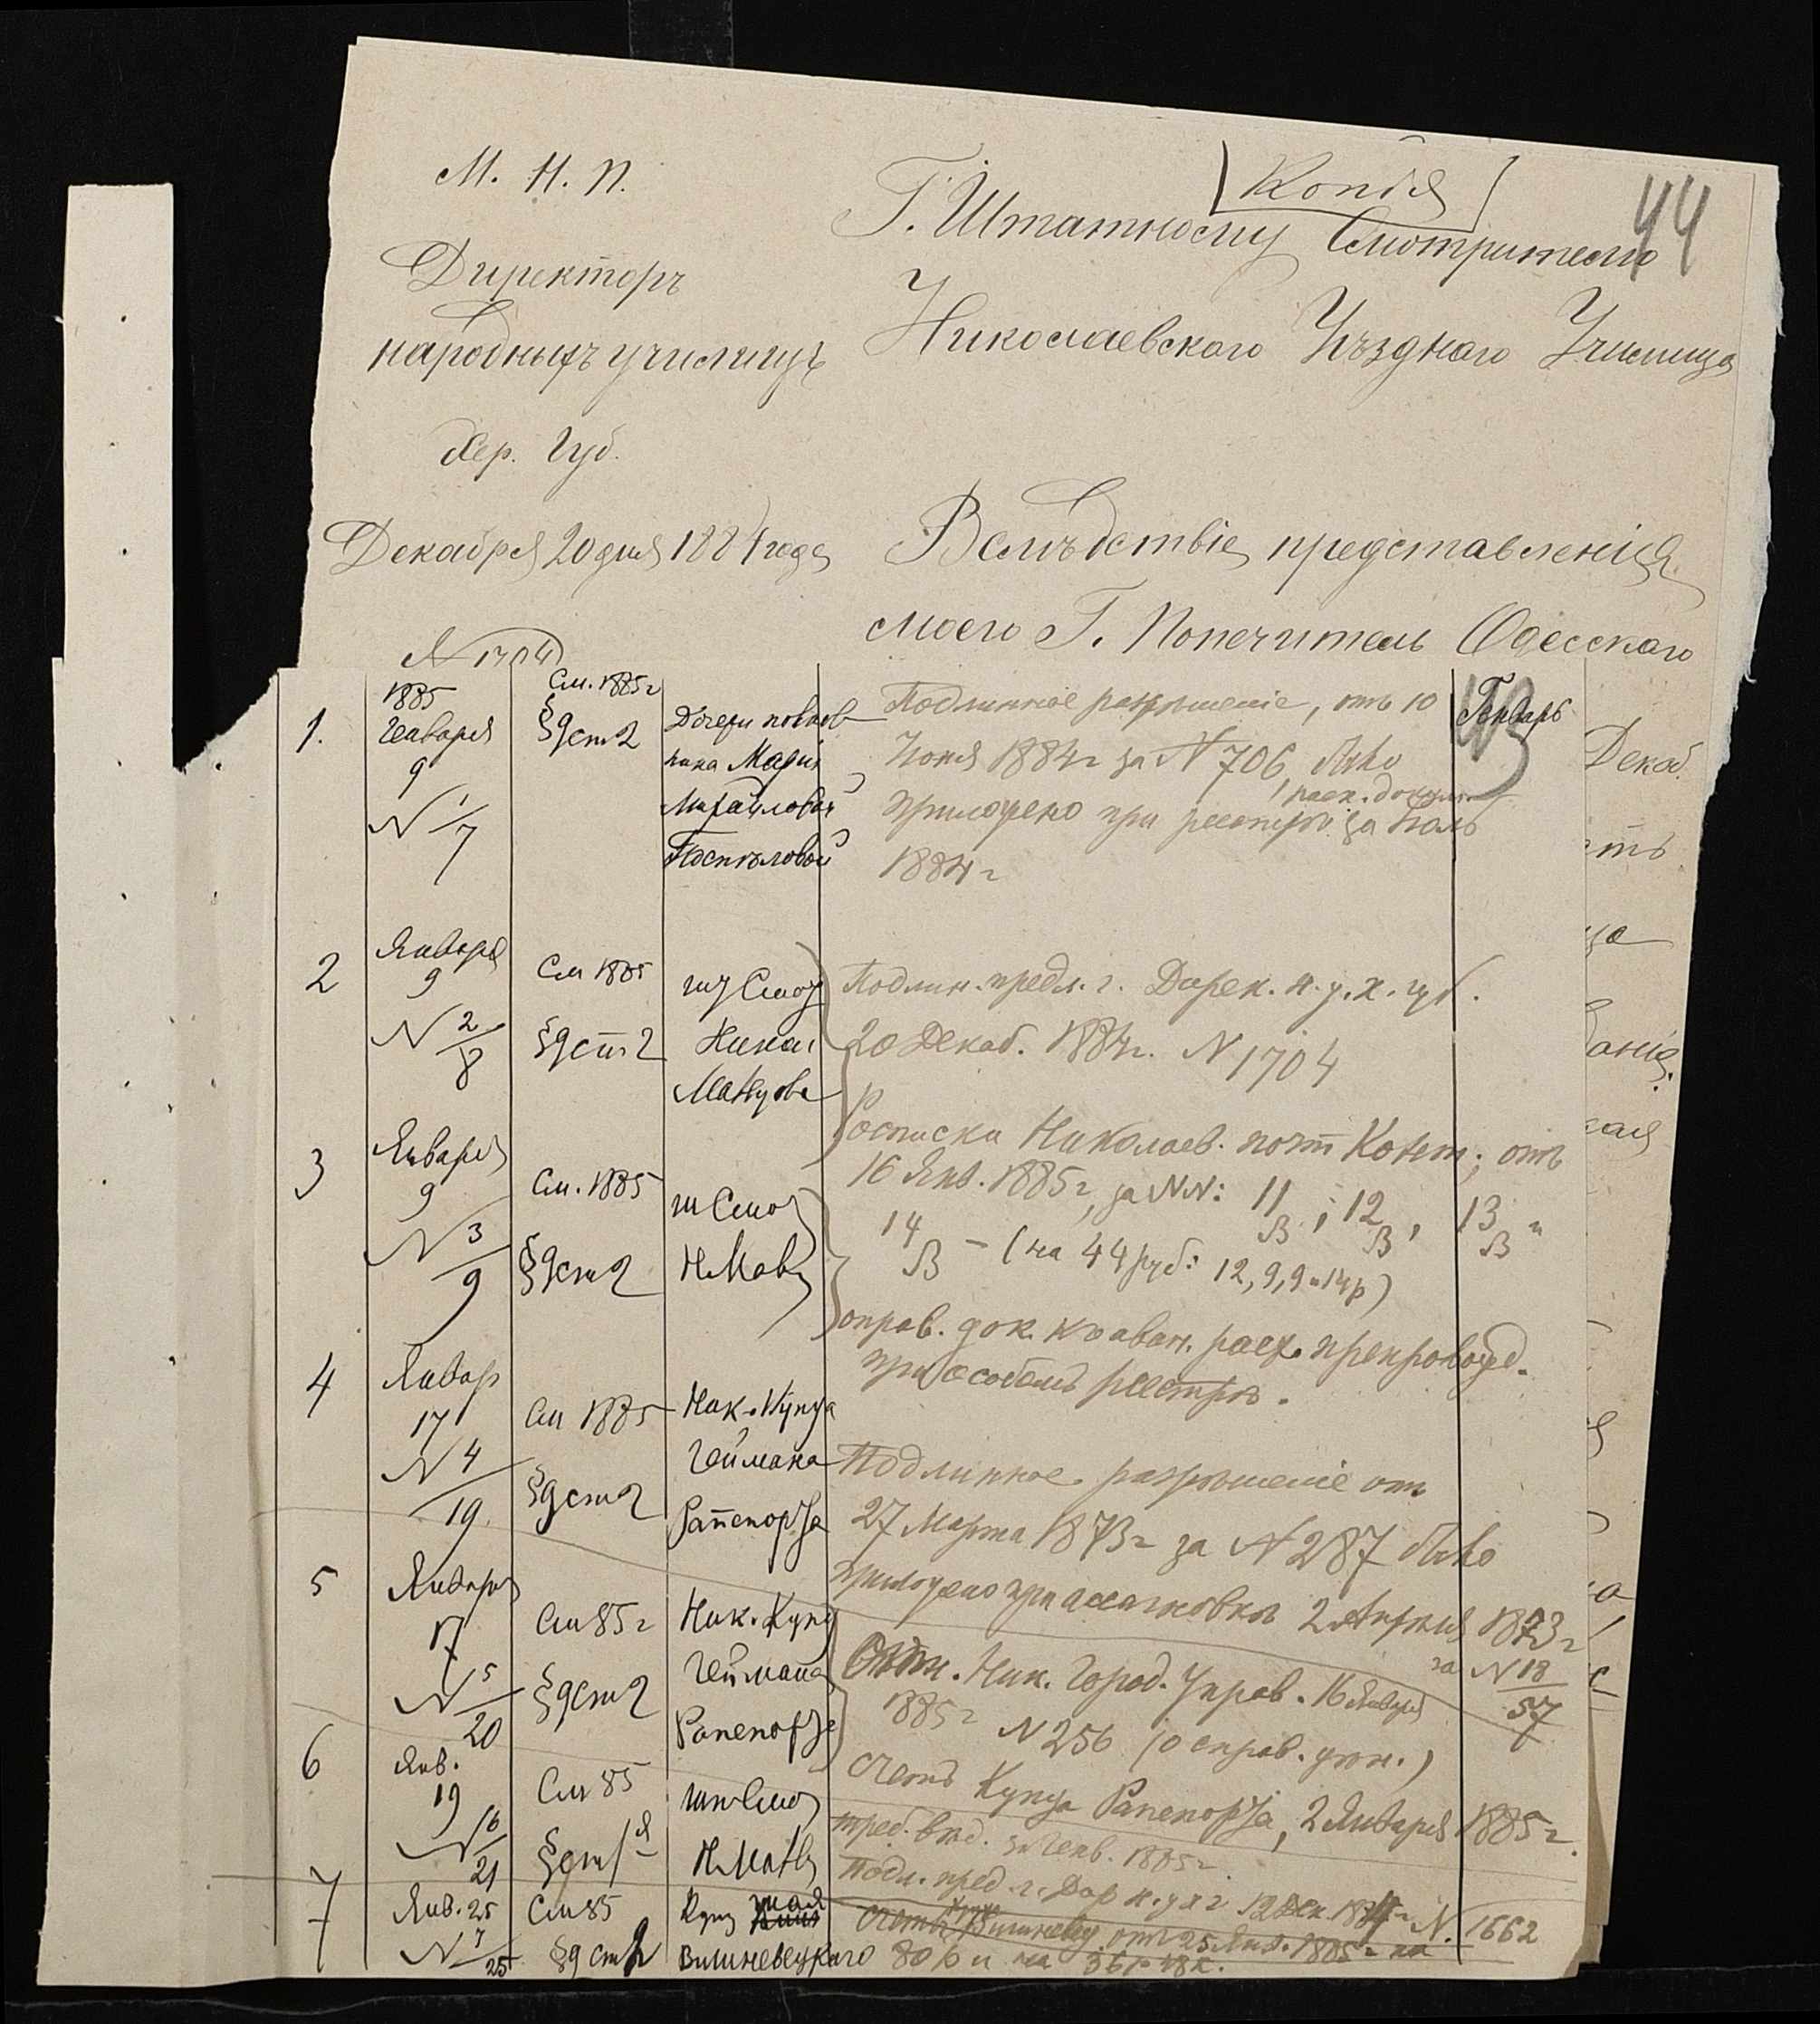 Копія
44
М. Н. П.
Г. Штатному Смотрителю
Директоръ
Николаевскаго Уѣзднаго Училища
народныхъ училищъ
Хер. Губ.
Декабря 20 дня 1884 года
Вслѣдствіе представленія
моего Г. Попечитель Одесскаго
N 1704
1.
1885
Генваря
9
N 1/7
См. 1885 г
§ 9 ст 2
Дочери полков
ника Маріи
Михайловой
Поспѣловой
Подлинное разрѣшеніе, отъ 10
Іюня 1884 г за N 706,
расх. докум.
приложено при реестрѣ за Іюль
1884 г
Генварь
43
Декаб.
2
Января
9
N 2/8
См 1885
§ 9 ст 2
шт Смот
Никол
Подлин. предл. г. Дирек. н. у. х. губ.
20 Декаб. 1884 г. N 1704
3
Января
9
N 3/9
См. 1885
§ 9 ст 2
ш Смо
Росписки Николаев. почт Конт; отъ
16 Янв. 1885 г, за NN: 11/В; 12/В, 13/В и
14/В - (на 44 руб: 12, 9, 9 и 14 р)
оправ. док. к аван. расх. препровожд.
при особомъ реестрѣ.
4
Январ
17
N 4/19
См 1885
§ 9 ст 2
Ник. Купца
Геймана
Рапепорта
Подлинное разрѣшеніе отъ
27 Марта 1873 г за N 287
приложено при ассигновкѣ 2 Апрѣля 1873 г
за N 18/57
5
Января
17
N 5/20
См 85 г
§ 9 ст 2
Ник. Купц
Геймана
Рапепорта
Отн. Ник. Город. Управ. 16 Января
1885 г N 256 (о справ. цѣн.)
Счетъ Купца Рапепорта, 2 Января 1885 г.
6
Янв.
19
N 6/21
См 85
§ ст 1 я
шт Смо
треб. вѣд. за Генв. 1885 г.
Подл. пред. г. Дир н. у х г 12 Дек. 1884 г N. 1662
7
Янв. 25
N 7/25
См 85
§ 9 ст 2
Купц
Вишневецкаго
Счетъ Вишневец отъ 25 Янв. 1885 г на
80 р и на 36 р 48 к.